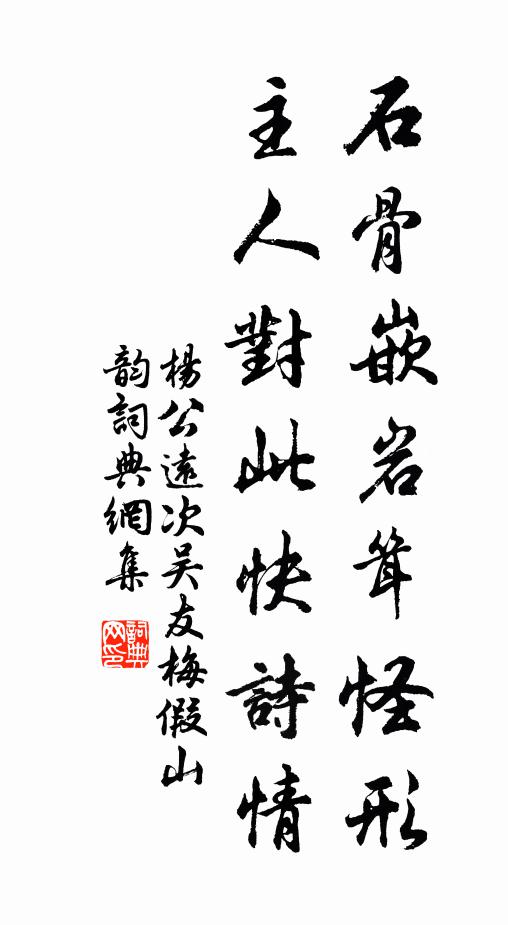 石骨嵌岩耸怪形
主人對此快詩情
楊公遠次吴友梅假山
韵詞典網集
詞典网印